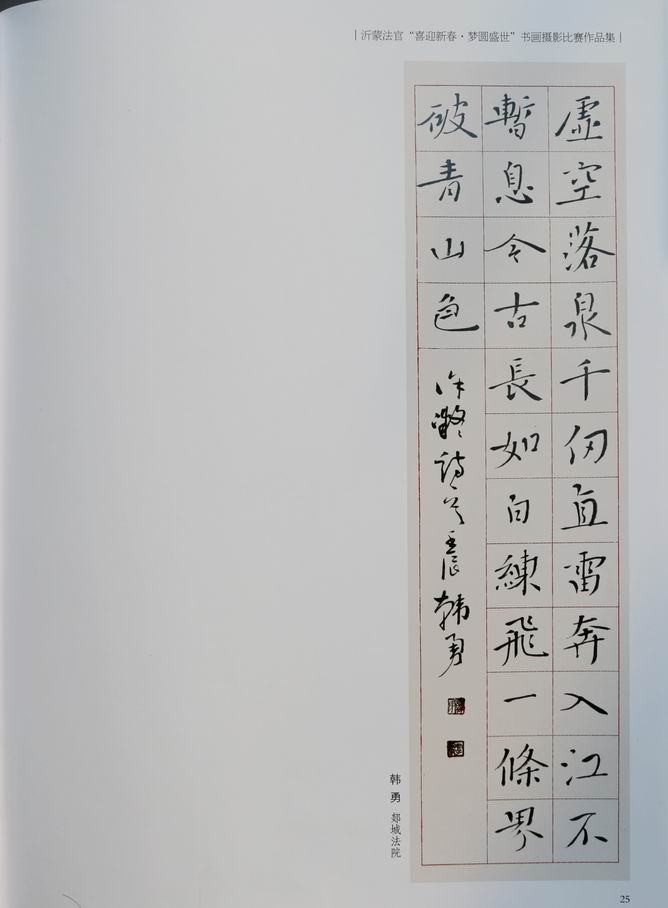 ｜沂蒙法官“喜迎新春·梦圆盛世”书画摄影比赛作品集｜
虛空落泉千仞直雷奔入江不
暫息今古長如白練飛一條界
破青山色
徐凝詩一首 壬辰 韩勇
韩勇 郯城法院
25